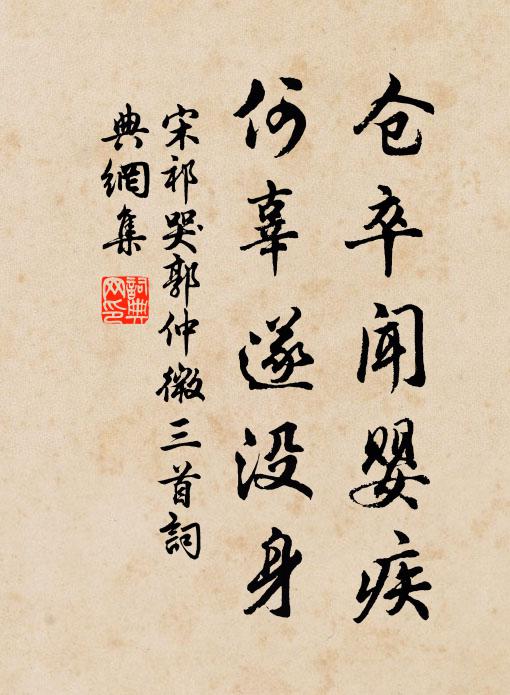 仓卒闻婴疾
何辜遂没身
宋祁哭郭仲微三首詞
典網集
詞典
网印